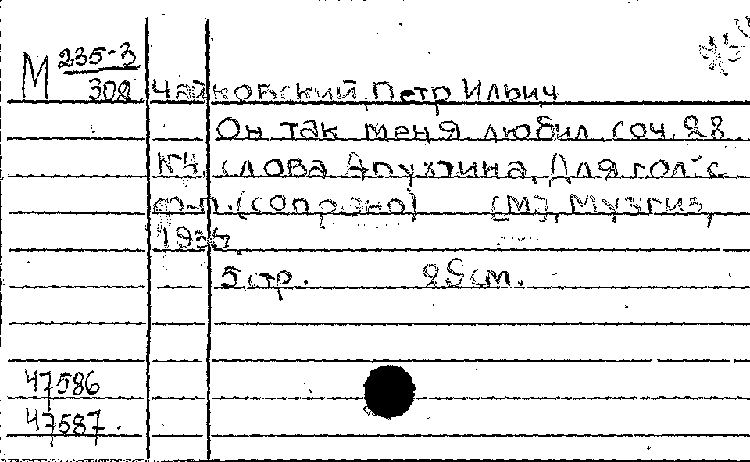 М 235-3
308 Чайковский Петр Ильич
Он так меня любил, соч. 28
№4, слова Апухтина, Для гол. с
ф-п. (сопрано) [М], Музгиз,
5 стр. 29 см.
47586
47587.